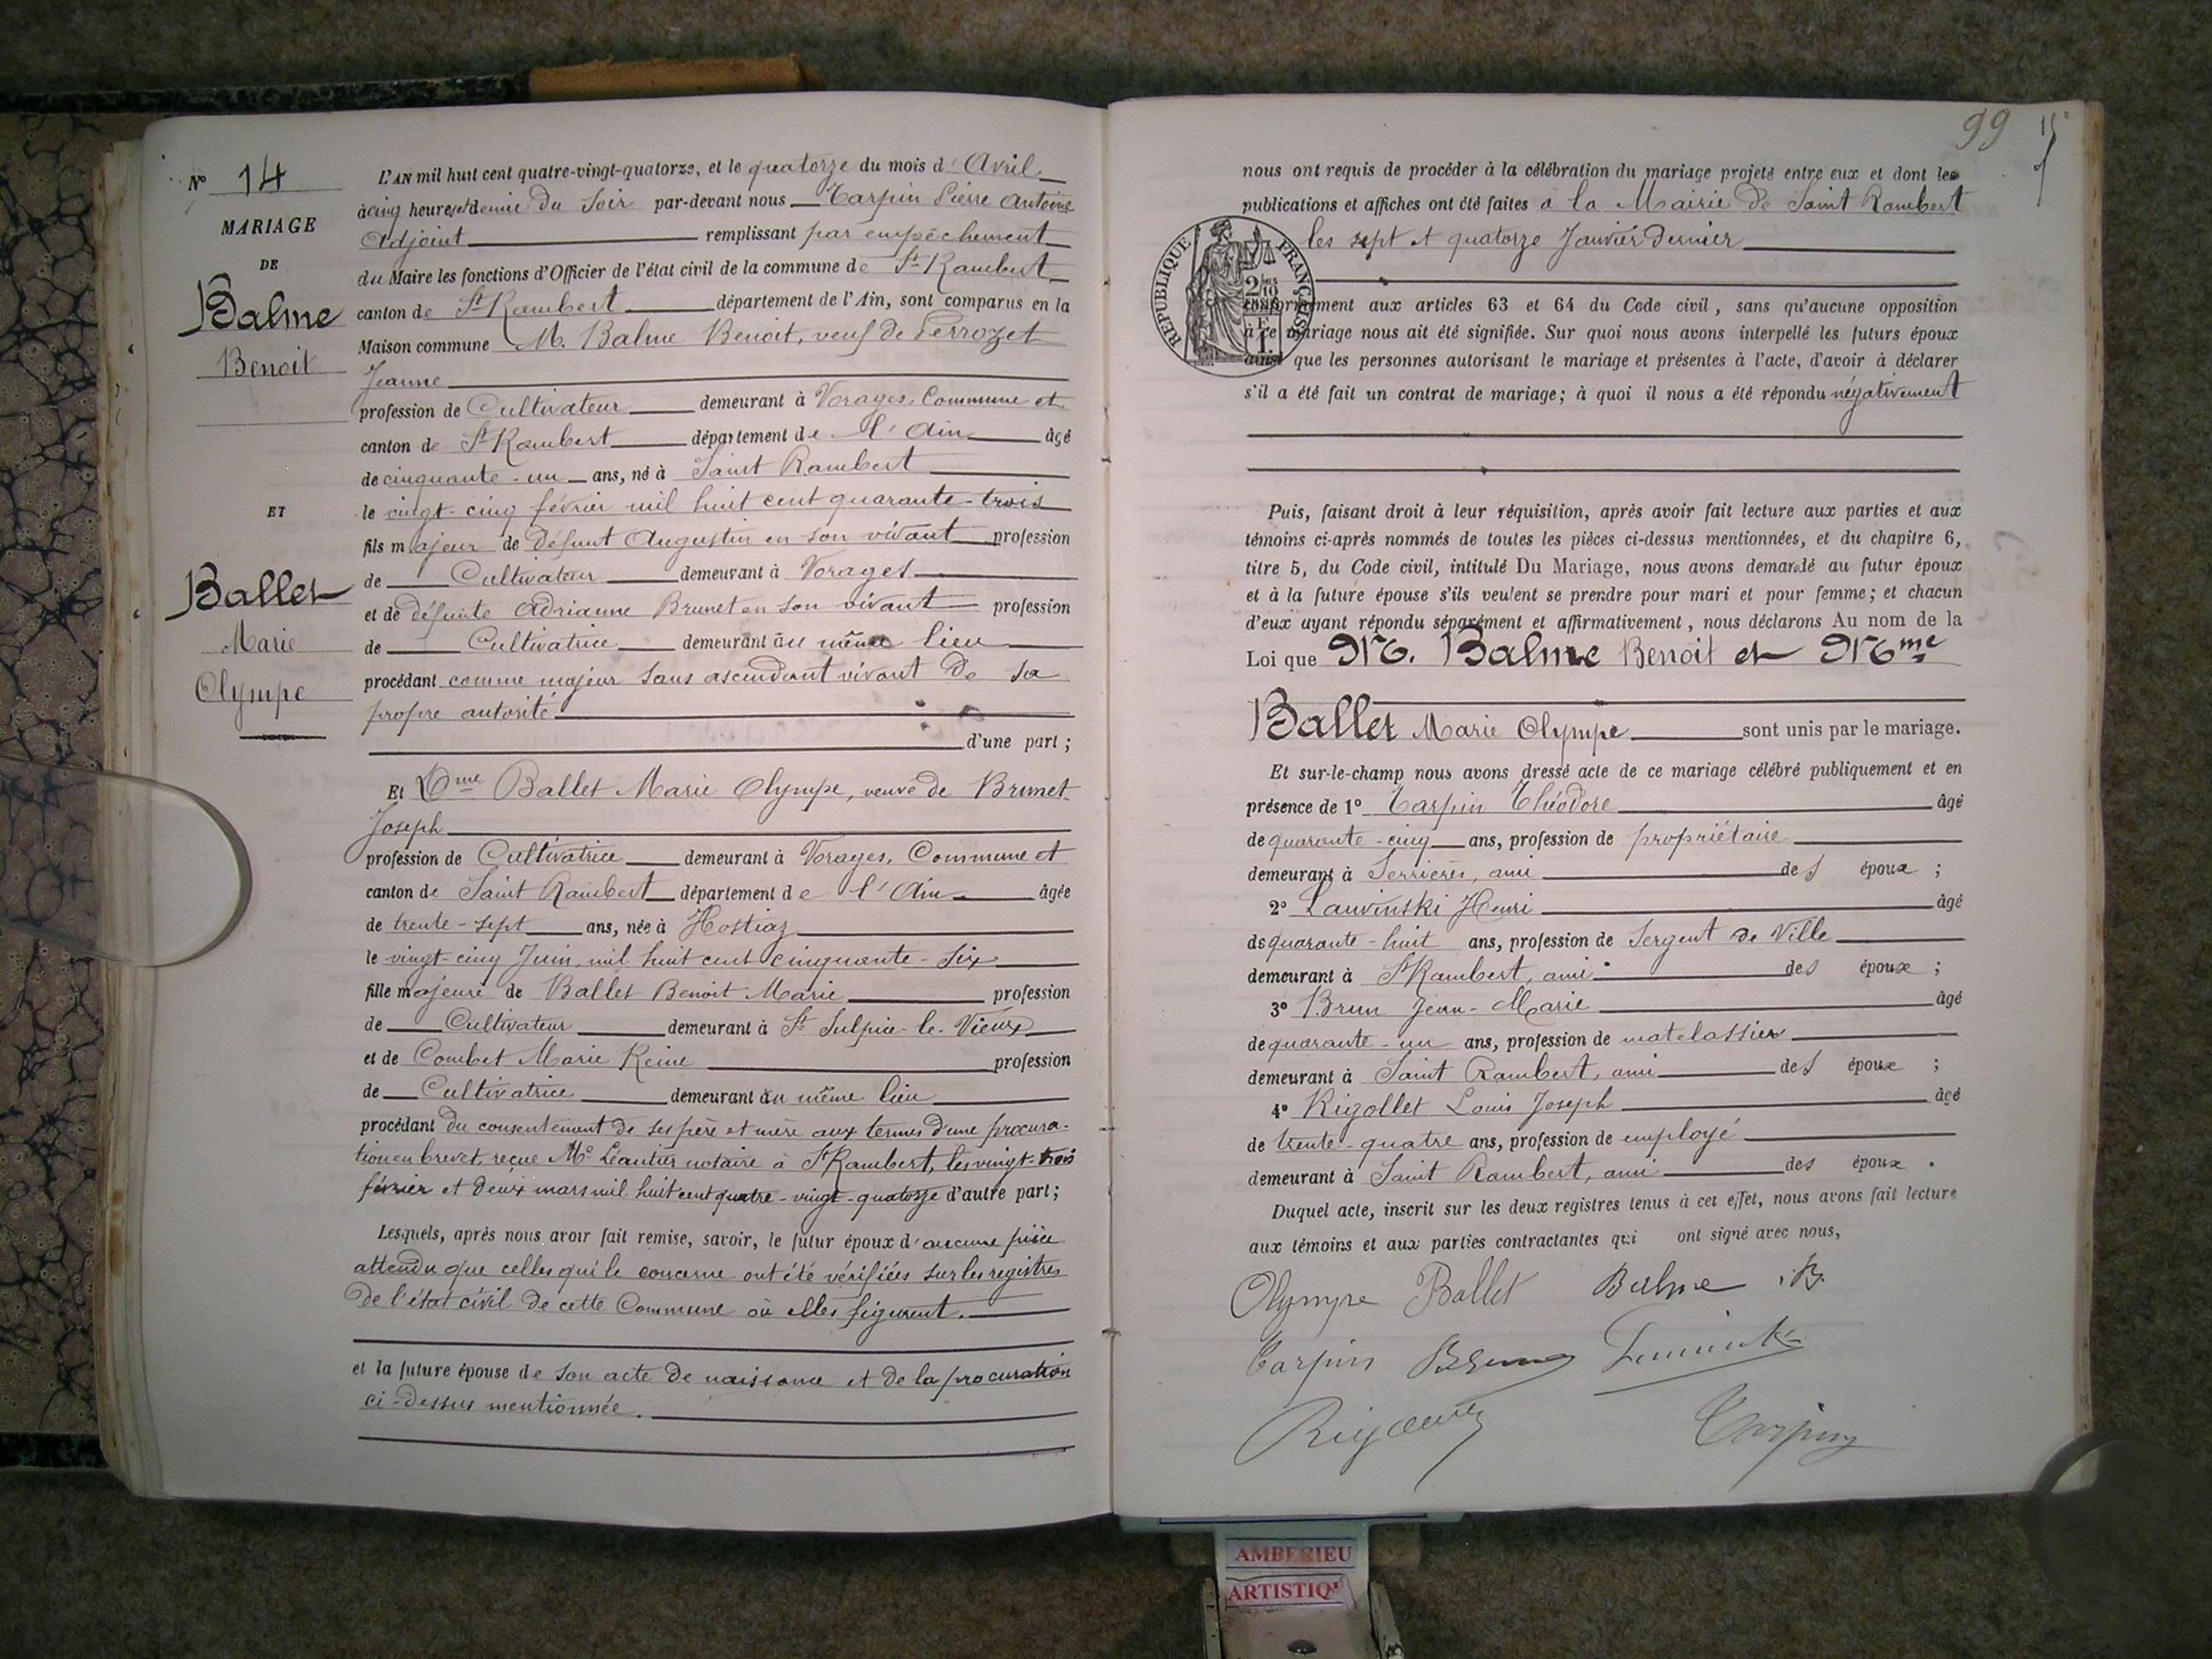 N° 14
MARIAGE
DE
Balme
Benoit
ET
Ballet
Marie
Olympe
L'AN mil huit cent quatre-vingt-quatorze, et le quatorze du mois d'Avril
à cinq heures et demie du soir par-devant nous Tarpin Pierre Antoine
Adjoint remplissant par empêchement
du Maire les fonctions d'Officier de l'état civil de la commune de St Rambert
canton de St Rambert département de l'Ain, sont comparus en la
Maison commune M. Balme Benoit, veuf de Perrozet
Jeanne
profession de Cultivateur demeurant à Vorages, Commune et
canton de St Rambert département de l'Ain âgé
de cinquante-un ans, né à Saint Rambert
le vingt-cinq février mil huit cent quarante-trois
fils majeur de défunt Augustin en son vivant profession
de Cultivateur demeurant à Vorages
et de défunte Adrianne Brunet en son vivant profession
de Cultivatrice demeurant au même lieu
procédant comme majeur sans ascendant vivant de sa
propre autorité
d'une part ;
Et Dme Ballet Marie Olympe, veuve de Brunet
Joseph
profession de Cultivatrice demeurant à Vorages, Commune et
canton de Saint Rambert département de l'Ain âgée
de trente-sept ans, née à Hostiaz
le vingt-cinq Juin mil huit cent cinquante-six
fille majeure de Ballet Benoit Marie profession
de Cultivateur demeurant à St Sulpice-le-Vieux
et de Combet Marie Reine profession
de Cultivatrice demeurant au même lieu
procédant du consentement de ses père et mère aux termes d'une procura-
tion en brevet, reçue Me Léautier notaire à St Rambert, les vingt-trois
février et deux mars mil huit cent quatre-vingt-quatorze d'autre part ;
Lesquels, après nous avoir fait remise, savoir, le futur époux d'aucune pièce
attendu que celles qui le concerne ont été vérifiées sur les registres
de l'état civil de cette Commune où elles figurent.
et la future épouse de son acte de naissance et de la procuration
ci-dessus mentionnée.
99
nous ont requis de procéder à la célébration du mariage projeté entre eux et dont les
publications et affiches ont été faites à la Mairie de Saint Rambert
les sept et quatorze Janvier dernier
REPUBLIQUE FRANÇAISE
conformément aux articles 63 et 64 du Code civil, sans qu'aucune opposition
à ce mariage nous ait été signifiée. Sur quoi nous avons interpellé les futurs époux
ainsi que les personnes autorisant le mariage et présentes à l'acte, d'avoir à déclarer
s'il a été fait un contrat de mariage ; à quoi il nous a été répondu négativement
Puis, faisant droit à leur réquisition, après avoir fait lecture aux parties et aux
témoins ci-après nommés de toutes les pièces ci-dessus mentionnées, et du chapitre 6,
titre 5, du Code civil, intitulé Du Mariage, nous avons demandé au futur époux
et à la future épouse s'ils veulent se prendre pour mari et pour femme ; et chacun
d'eux ayant répondu séparément et affirmativement, nous déclarons Au nom de la
Loi que M. Balme Benoit et Mme
Ballet Marie Olympe sont unis par le mariage.
Et sur-le-champ nous avons dressé acte de ce mariage célébré publiquement et en
présence de 1° Tarpin Théodore âgé
de quarante-cinq ans, profession de propriétaire
demeurant à Serrières, ami des époux ;
2° Lauvinski Henri âgé
de quarante-huit ans, profession de Sergent de Ville
demeurant à St Rambert, ami des époux ;
3° Brun Jean-Marie âgé
de quarante-un ans, profession de matelassier
demeurant à Saint Rambert, ami des époux ;
4° Rigollet Louis Joseph âgé
de trente-quatre ans, profession de employé
demeurant à Saint Rambert, ami des époux .
Duquel acte, inscrit sur les deux registres tenus à cet effet, nous avons fait lecture
aux témoins et aux parties contractantes qui ont signé avec nous,
Olympe Ballet Balme B.
Tarpin Brun
Tarpin
AMBERIEU
ARTISTIQ